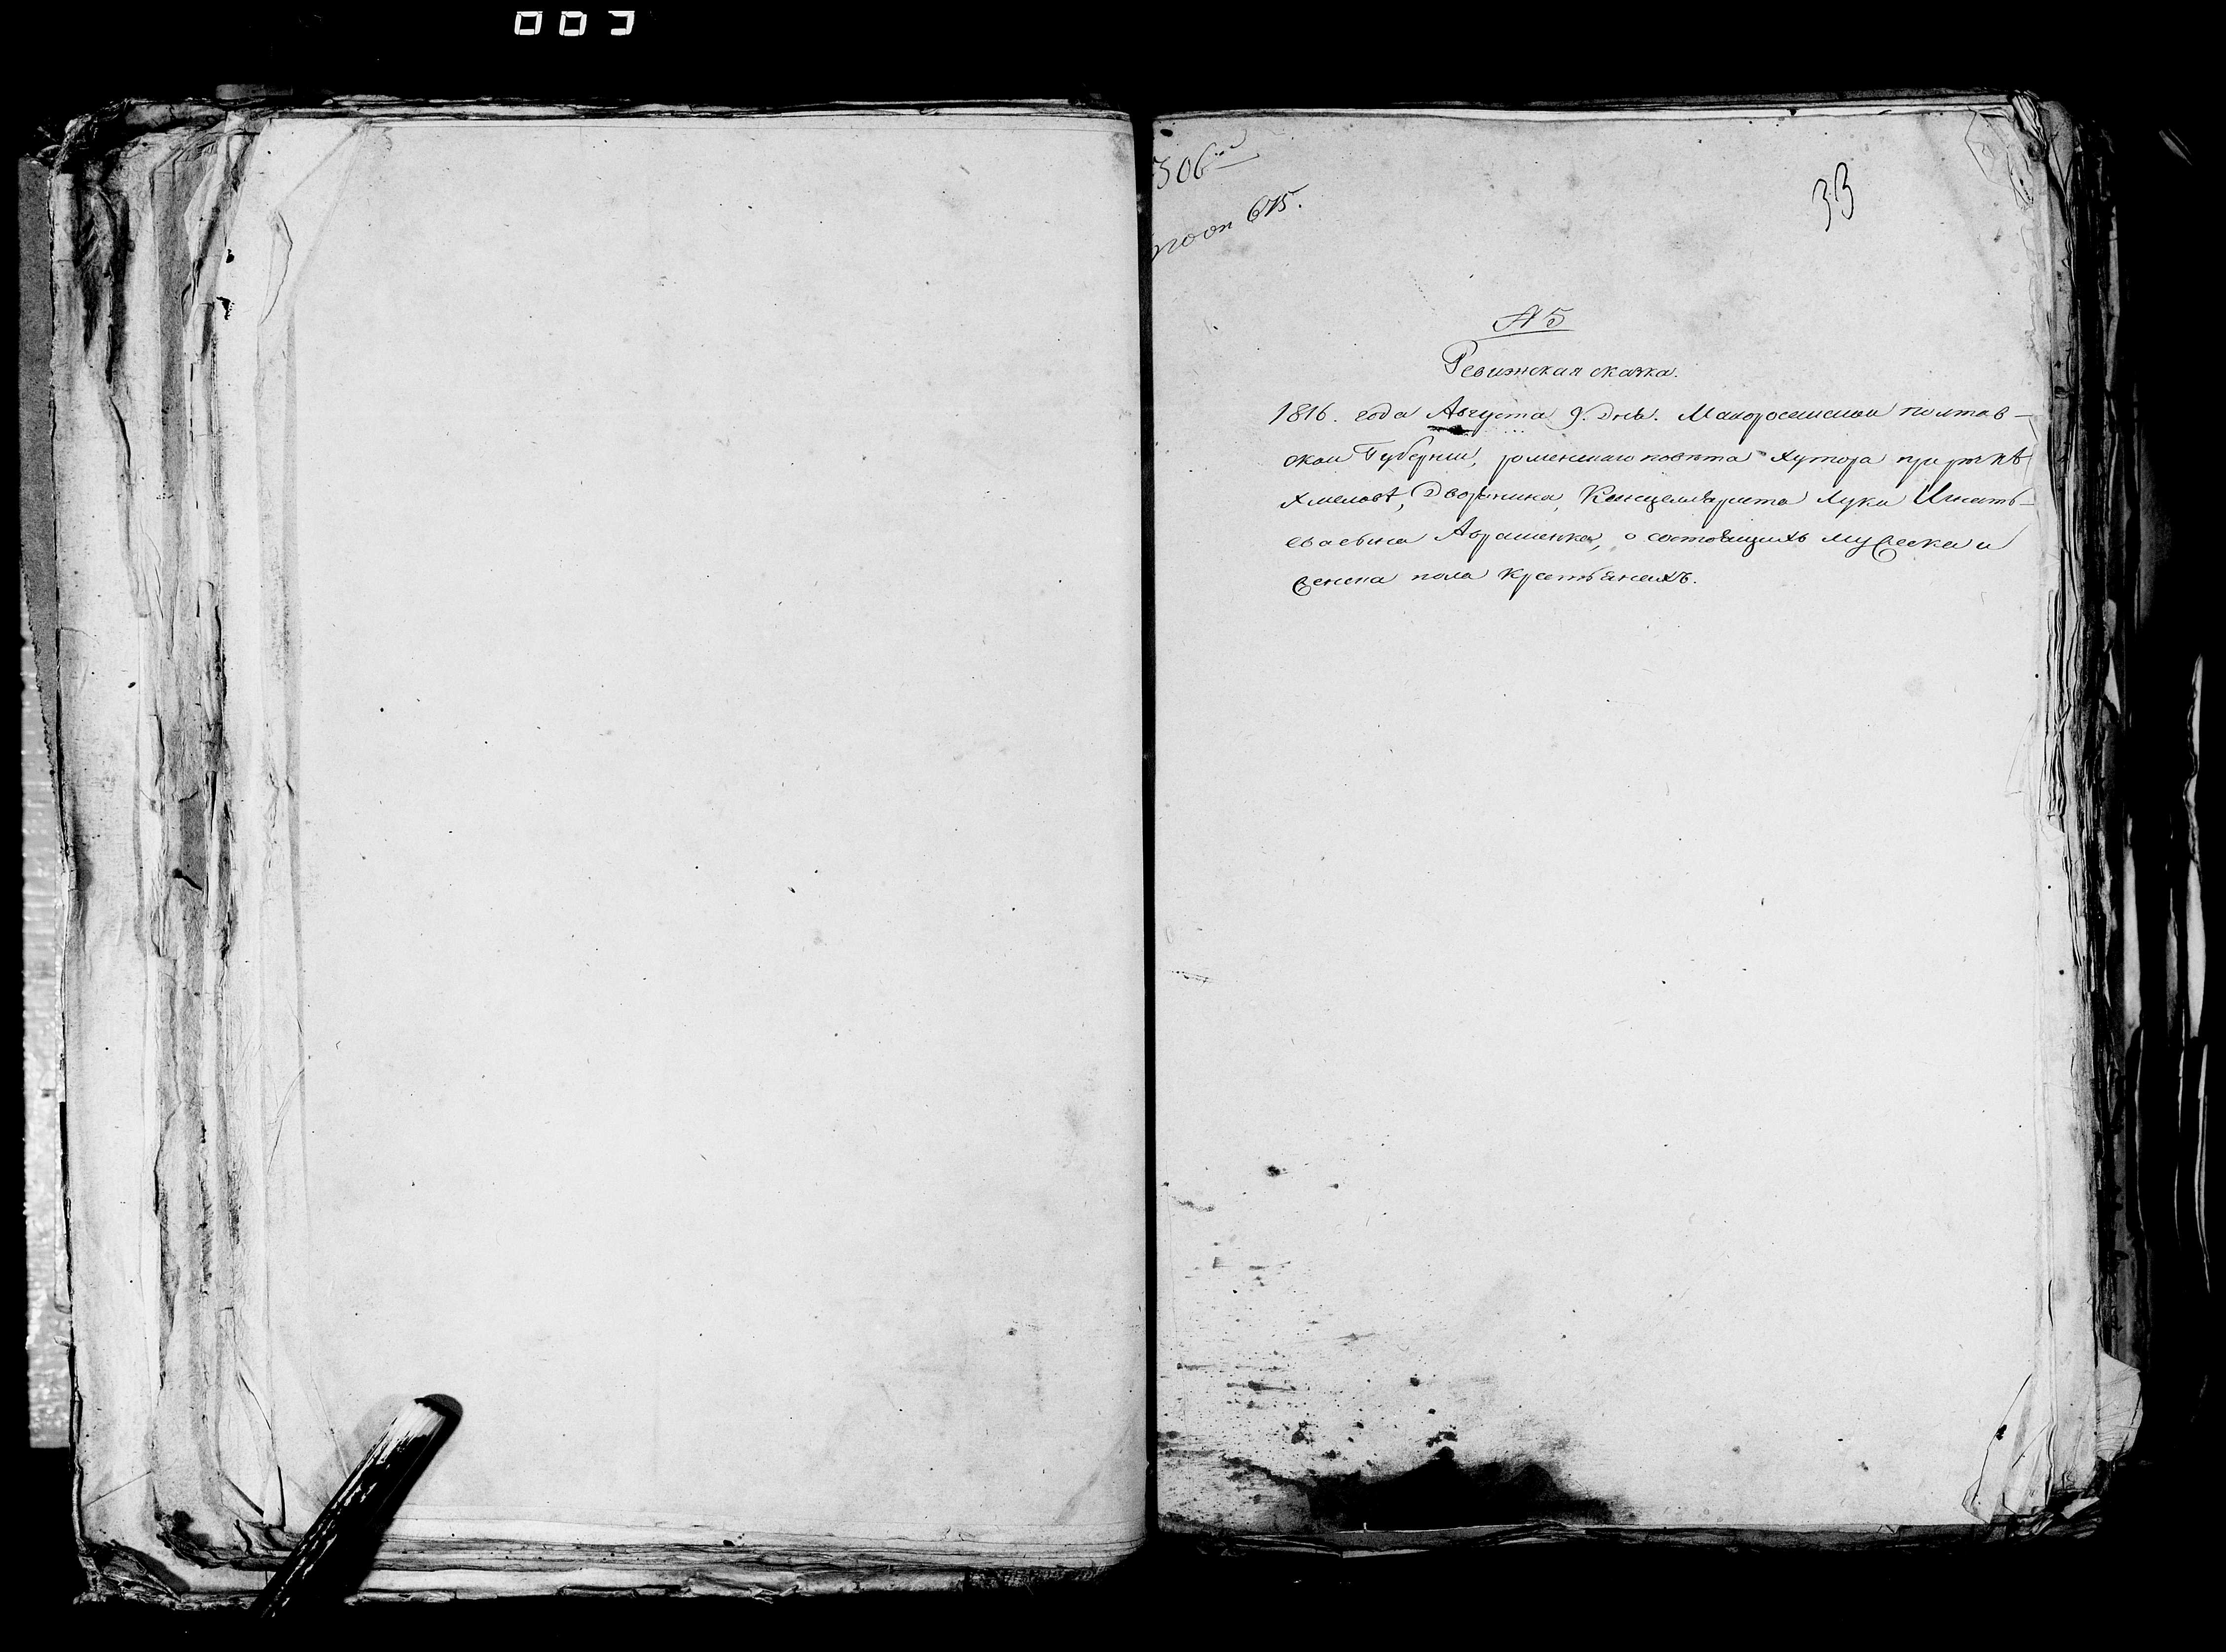 003
306
675.
33
№ 5
Ревижская сказка.
1816. года Августа 9. днь. Малоросейской полтав-
ской Губернии, роменскаго повѣта хутора при речкѣ
хмеловѣ, Дворянина, Канцеляриста Луки Игнать-
ева сына Авраменка, о состоящихъ мужеска и
женска пола крестьянехъ.